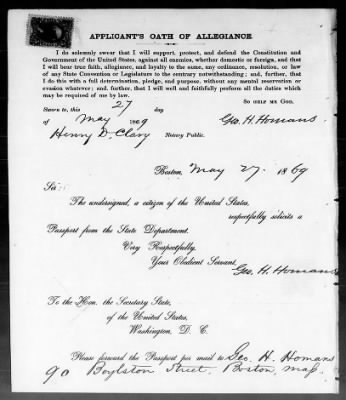 APPLICANT'S OATH OF ALLEGIANCE.
I do solemnly swear that I will support, protect, and defend the Constitution and
Government of the United States, against all enemies, whether domestic or foreign, and that
I will bear true faith, allegiance, and loyalty to the same, any ordinance, resolution, or law
of any State Convention or Legislature to the contrary notwithstanding; and, further, that
I do this with a full determination, pledge, and purpose, without any mental reservation or
evasion whatever; and, further, that I will well and faithfully perform all the duties which
may be required of me by law.
So HELP ME GOD.
Sworn to, this 27 day
of May 1869
Geo. H. Homans
Henry D. Clary Notary Public.
Boston, May 27. 1869
Sir:
The undersigned, a citizen of the United States,
respectfully solicits a
Passport from the State Department.
Very Respectfully,
Your Obedient Servant,
Geo. H. Homans
To the Hon. the Secretary State,
of the United States,
Washington, D. C.
Please forward the Passport per mail to Geo. H. Homans
90 Boylston Street, Boston, Mass